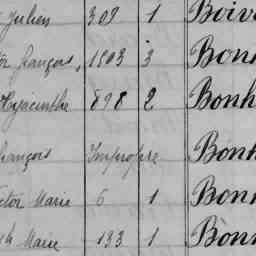 Julien 309 1 Boiv
tor françois, 1803 3 Bonh
Hyacinthe 898 2 Bonh
rançois Impropre Bonh
ictor Marie 6 1 Bonn
Marie 133 1 Bonn